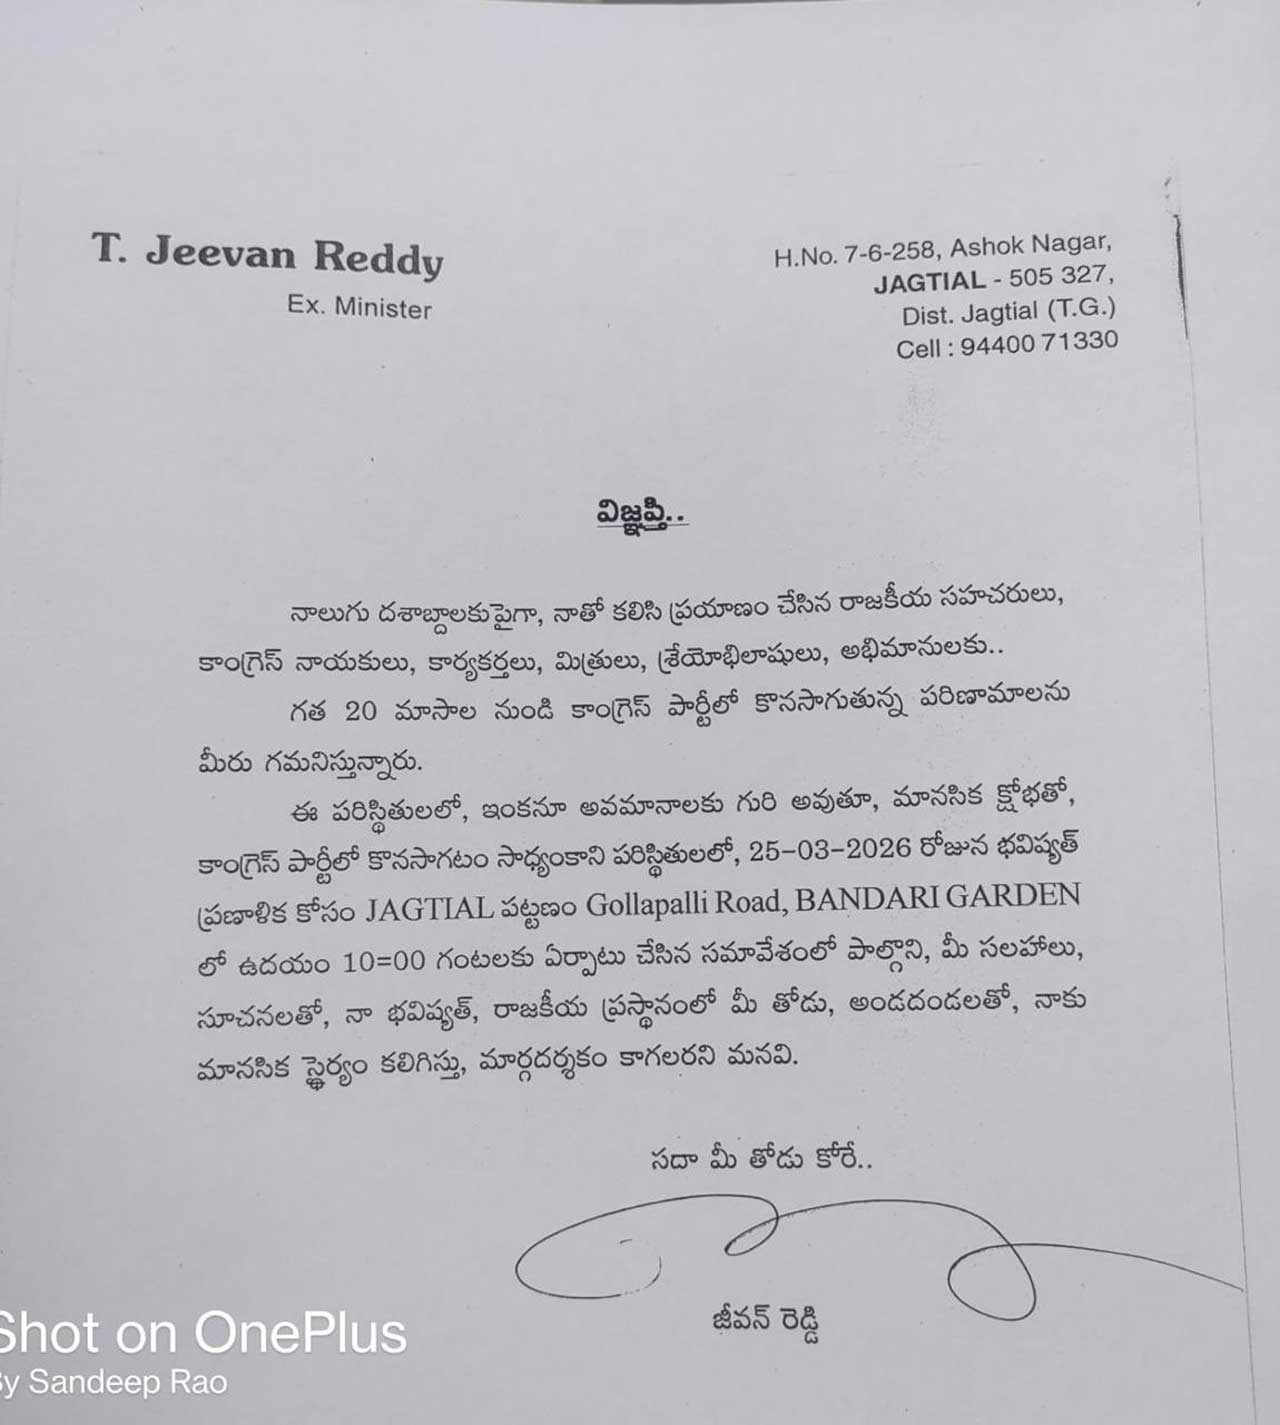 T. Jeevan Reddy
Ex. Minister
H.No. 7-6-258, Ashok Nagar,
JAGTIAL - 505 327,
Dist. Jagtial (T.G.)
Cell : 94400 71330
విజ్ఞప్తి..
నాలుగు దశాబ్దాలకుపైగా, నాతో కలిసి ప్రయాణం చేసిన రాజకీయ సహచరులు,
కాంగ్రెస్ నాయకులు, కార్యకర్తలు, మిత్రులు, శ్రేయోభిలాషులు, అభిమానులకు..
గత 20 మాసాల నుండి కాంగ్రెస్ పార్టీలో కొనసాగుతున్న పరిణామాలను
మీరు గమనిస్తున్నారు.
ఈ పరిస్థితులలో, ఇంకనూ అవమానాలకు గురి అవుతూ, మానసిక క్షోభతో,
కాంగ్రెస్ పార్టీలో కొనసాగటం సాధ్యంకాని పరిస్థితులలో, 25-03-2026 రోజున భవిష్యత్
ప్రణాళిక కోసం JAGTIAL పట్టణం Gollapalli Road, BANDARI GARDEN
లో ఉదయం 10=00 గంటలకు ఏర్పాటు చేసిన సమావేశంలో పాల్గొని, మీ సలహాలు,
సూచనలతో, నా భవిష్యత్, రాజకీయ ప్రస్థానంలో మీ తోడు, అండదండలతో, నాకు
మానసిక స్థైర్యం కలిగిస్తు, మార్గదర్శకం కాగలరని మనవి.
సదా మీ తోడు కోరే..
జీవన్ రెడ్డి
Shot on OnePlus
By Sandeep Rao